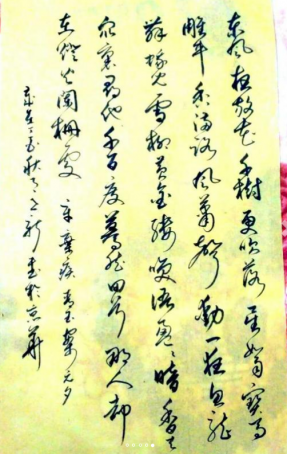 东风夜放花千树更吹落星如雨宝马
雕车香满路凤箫声动一夜鱼龙
舞蛾儿雪柳黄金缕笑语盈盈暗香去
众里寻他千百度蓦然回首那人却
在灯火阑珊处 辛弃疾青玉案元夕
秋月 书于京华